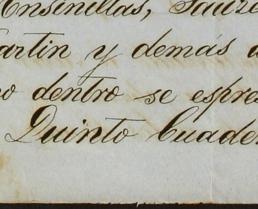 Ensinillas, Sauze
artin y demás a
o dentro se espres
Quinto Cuader